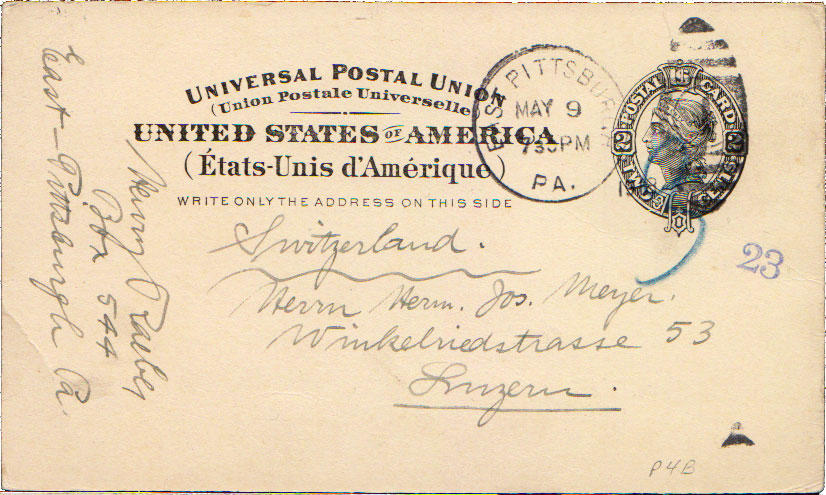 UNIVERSAL POSTAL UNION
(Union Postale Universelle)
UNITED STATES OF AMERICA
(États-Unis d'Amérique)
WRITE ONLY THE ADDRESS ON THIS SIDE
EAST PITTSBURGH
MAY 9
730PM
PA.
POSTAL CARD
2 2
Switzerland.
Herrn Herm. Jos. Meyer.
Winkelriedstrasse 53
Luzern.
23
Henry
Box 544
East-Pittsburgh Pa.
P4B